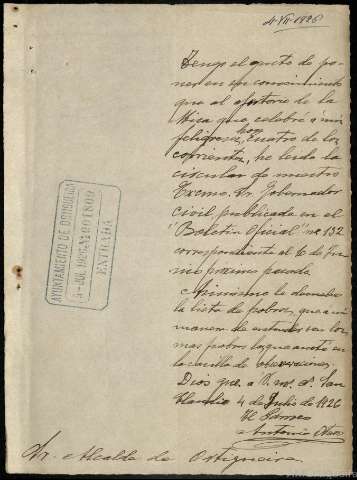 4-VII-1926
Tengo el gusto de po-
ner en su conocimiento
que al ofertorio de la
Misa que celebré a mis
feligreses hoy cuatro de los
corrientes, he leido la
circular de nuestro
Excmo. Sr. Gobernador
civil publicada en el
"Boletin Oficial" nº 132
correspondiente al 6 de Ju-
nio próximo pasado
Asimismo le devuelvo
la lista de pobres, que a mi
manera de entender son los
mas pobres los que anoté en
la casilla de observaciones.
Dios gue. a V. ms. as. San
Claudio 4 de Julio de 1926
El Párroco
Antonio
Sr. Alcalde de Ortigueira.
AYUNTAMIENTO DE ORTIGUEIRA
4-JUL.1926 Nº 001809
ENTRADA